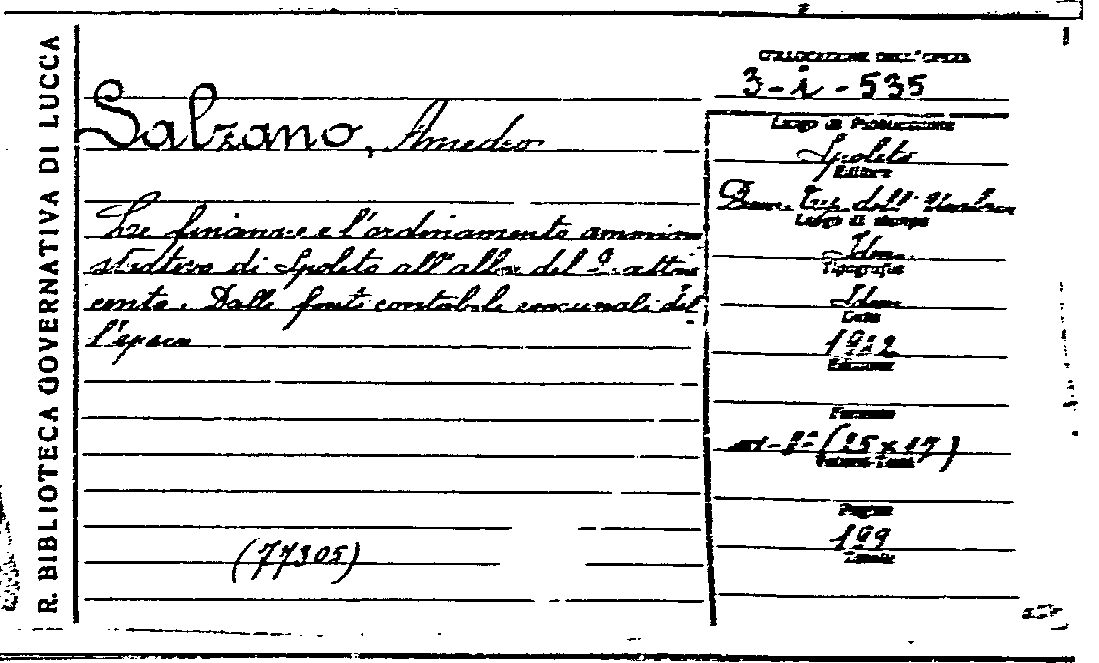 R. BIBLIOTECA GOVERNATIVA DI LUCCA
Salzano, Amedeo
Le finanze e l'ordinamento ammini
strativo di Spoleto all'alba del
cento. Dalle fonti contabili comunali del
l'epoca
(77305)
COLLOCAZIONE DELL'OPERA
3-i-535
Luogo di Pubblicazione
Spoleto
Editore
Tip. dell'Umbria
Luogo di stampa
Idem
Tipografia
Idem
Data
1942
Edizione
Formato
(25x17)
Pagine
199
Tavole